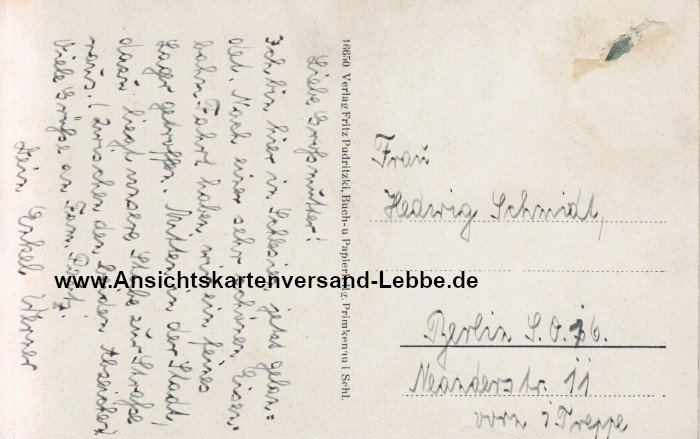 Liebe Großmutter!
Ich bin hier in Schlesien jetzt gelan-
det. Nach einer sehr schönen Eisen-
bahn-Fahrt haben wir ein feines
Lager getroffen. Mitten in der Stadt,
dazu liegt unsere Stube zur Straße
raus. (Zwischen den beiden Abzeichen)
Viele Grüße an Fam.
Dein Enkel Werner
16650 Verlag Fritz Pudritzki, Buch- u Papierhdlg. Primkenau i Schl.
Frau
Hedwig Schmidt,
Berlin S.O. 16.
Neanderstr. 11
vorn 1 Treppe
www.Ansichtskartenversand-Lebbe.de